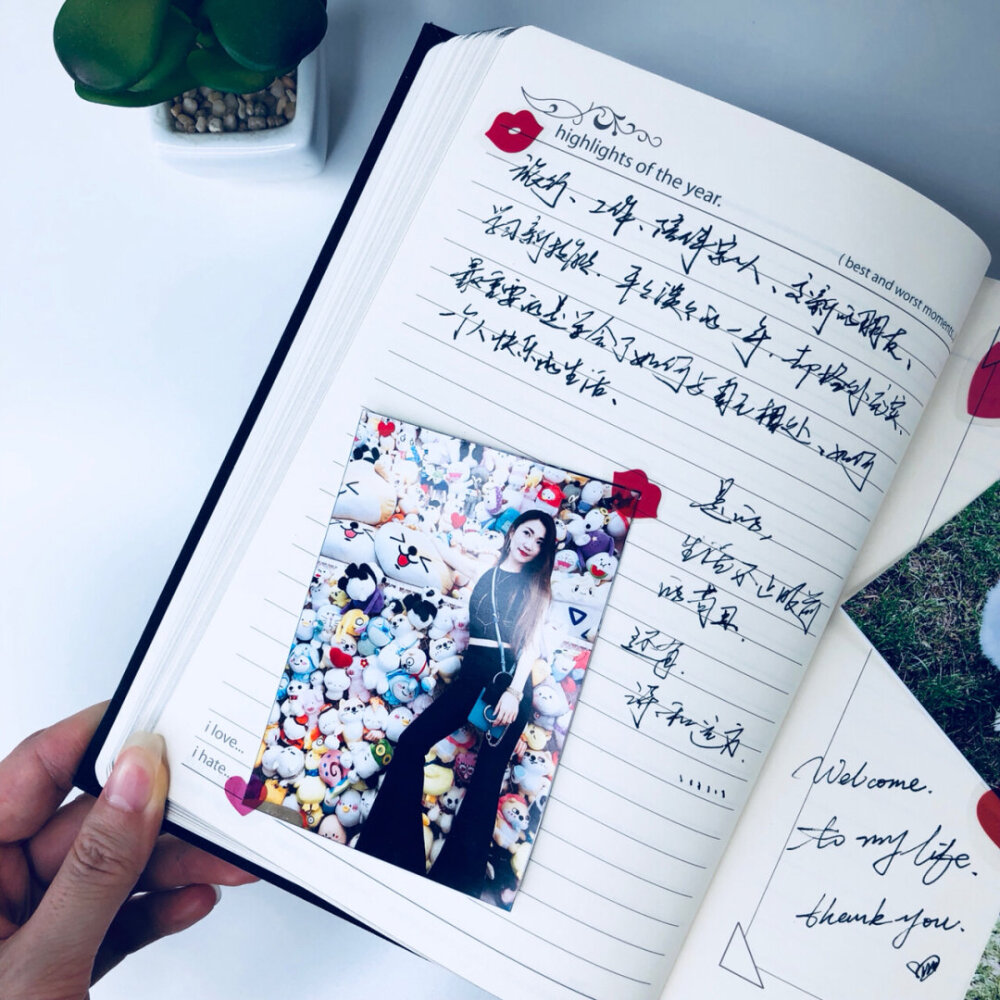 highlights of the year.
( best and worst moments
旅行、工作、陪伴家人、交新的朋友、
学习新技能. 平平淡淡的一年, 却格外充实.
最重要的是学会了如何与自己相处、如何
一个人快乐的生活、
是的,
生活不止眼前
的苟且.
还有
诗和远方.
......
i love...
i hate...
Welcome.
to my life.
thank you.